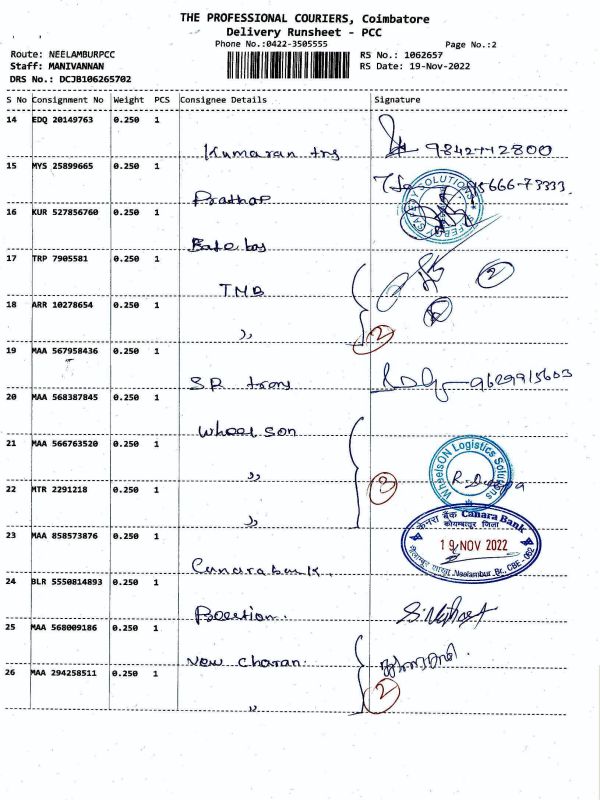 THE PROFESSIONAL COURIERS, Coimbatore
Delivery Runsheet - PCC
Phone No.:0422-3505555
Page No.:2
Route: NEELAMBURPCC
RS No.: 1062657
Staff: MANIVANNAN
RS Date: 19-Nov-2022
DRS No.: DCJB106265702
S No Consignment No Weight PCS Consignee Details Signature
14 EDQ 20149763 0.250 1
Kumaran trs
15 MYS 25899665 0.250 1
Prathap 95666-73333
SAFEBOY SAFETY SOLUTIONS
16 KUR 527856760 0.250 1
17 TRP 7905581 0.250 1
TMB 2
18 ARR 10278654 0.250 1
,, 2
19 MAA 567958436 0.250 1
SR trans
20 MAA 568387845 0.250 1
Wheel son
21 MAA 566763520 0.250 1
,,
WheelsON Logistics Solutions
22 MTR 2291218 0.250 1
,, 3
23 MAA 858573876 0.250 1
Canara bank.
केनरा बैंक Canara Bank
कोयम्बत्तूर जिला
19 NOV 2022
Neelambur, Br, CBE - 062
24 BLR 5550814893 0.250 1
25 MAA 568009186 0.250 1
New Charan
26 MAA 294258511 0.250 1
,, 2